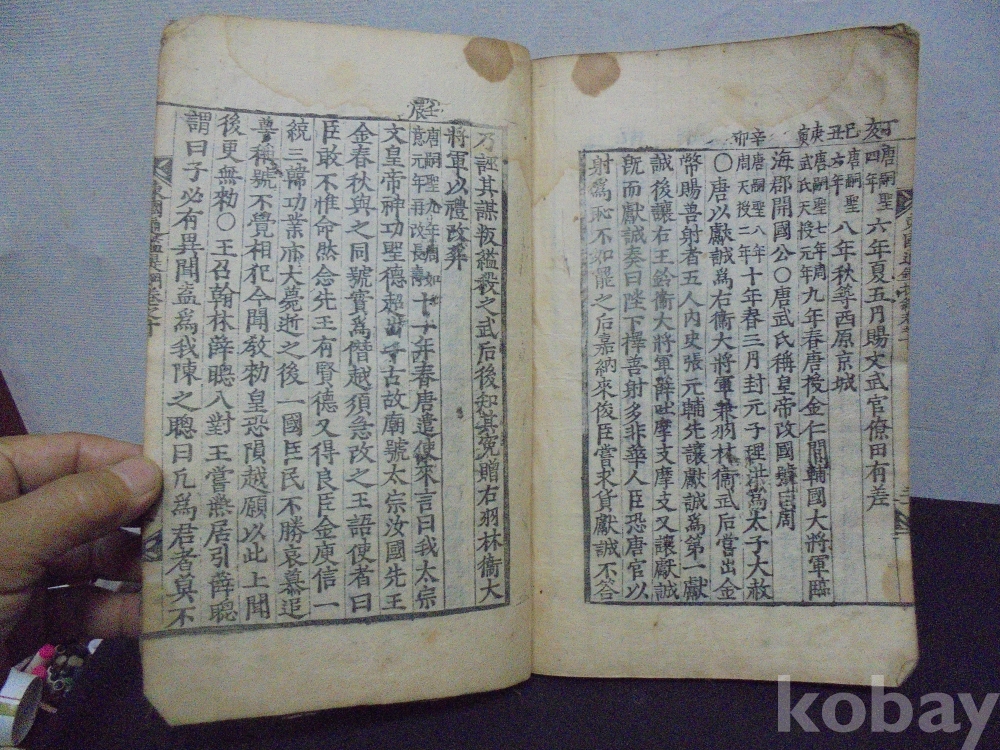 丁亥唐嗣聖四年六年夏五月賜文武官僚田有差
己丑唐嗣聖六年八年秋葺西原京城
庚寅唐嗣聖七年周武氏天授元年九年春唐授金仁問輔國大將軍臨
海郡開國公○唐武氏稱皇帝改國號曰周
辛卯唐嗣聖八年周天授二年十年春三月封元子理洪爲太子大赦
○唐以獻誠爲右衞大將軍兼羽林衞武后嘗出金
幣賜善射者五人內史張元輔先讓獻誠爲第一獻
誠後讓右王鈐衞大將軍薛吐摩支摩支又讓獻誠
旣而獻誠奏曰陛下擇善射多非華人臣恐唐官以
射爲恥不如罷之后嘉納來俊臣嘗求貨獻誠不答
乃誣其謀叛縊殺之武后後知其寃贈右羽林衞大
將軍以禮改葬
壬辰唐嗣聖九年周如意元年再改長壽十二年春唐遣使來言曰我太宗
文皇帝神功聖德超出千古故廟號太宗汝國先王
金春秋與之同號實爲僭越須急改之王語使者曰
臣敢不惟命然念先王有賢德又得良臣金庾信一
統三韓功業亦大薨逝之後一國臣民不勝哀慕追
尊稱號不覺相犯今聞敎勅皇恐隕越願以此上聞
後更無勅○王召翰林薛聰入對王嘗燕居引薛聰
謂曰子必有異聞盍爲我陳之聰曰凡爲君者莫不
東國通鑑提綱卷之十
kobay